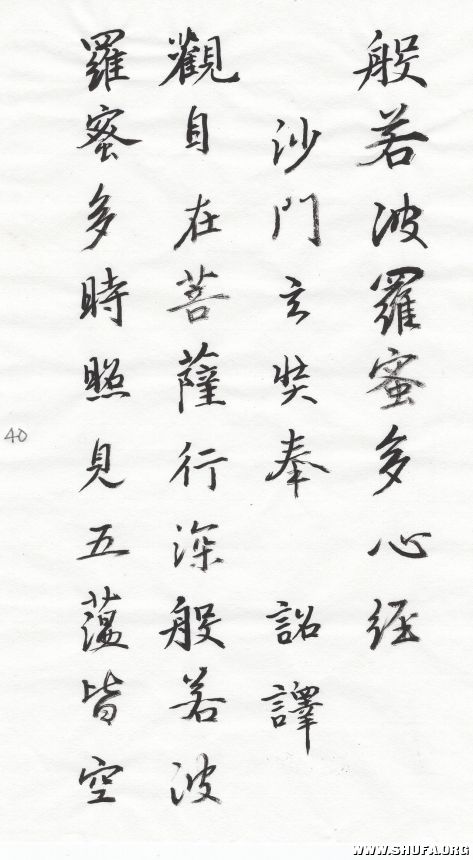 般若波羅蜜多心经
沙門玄奘奉 詔譯
觀自在菩薩行深般若波
羅蜜多時照見五蕴皆空
40
WWW.SHUFA.ORG